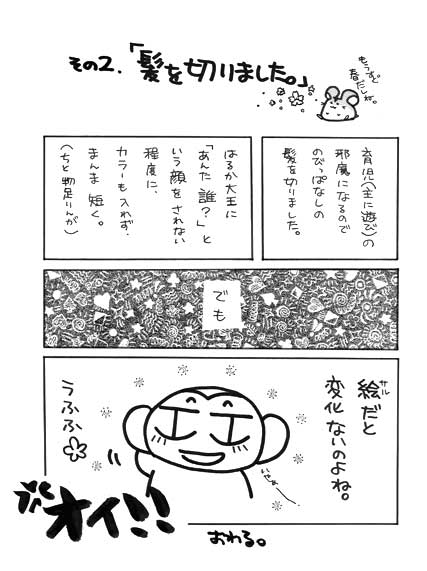 その2.「髪を切りました。」
もうすぐ
春だしね。
育児(主に遊び)の
邪魔になるので
のびっぱなしの
髪を切りました。
はるか大王に
「あんた誰?」と
いう顔をされない
程度に、
カラーも入れず、
まんま短く。
(ちと物足りんが)
でも
絵だと
サル
変化ないのよね。
うふふ
いやぁー
オイ!!
おわる。